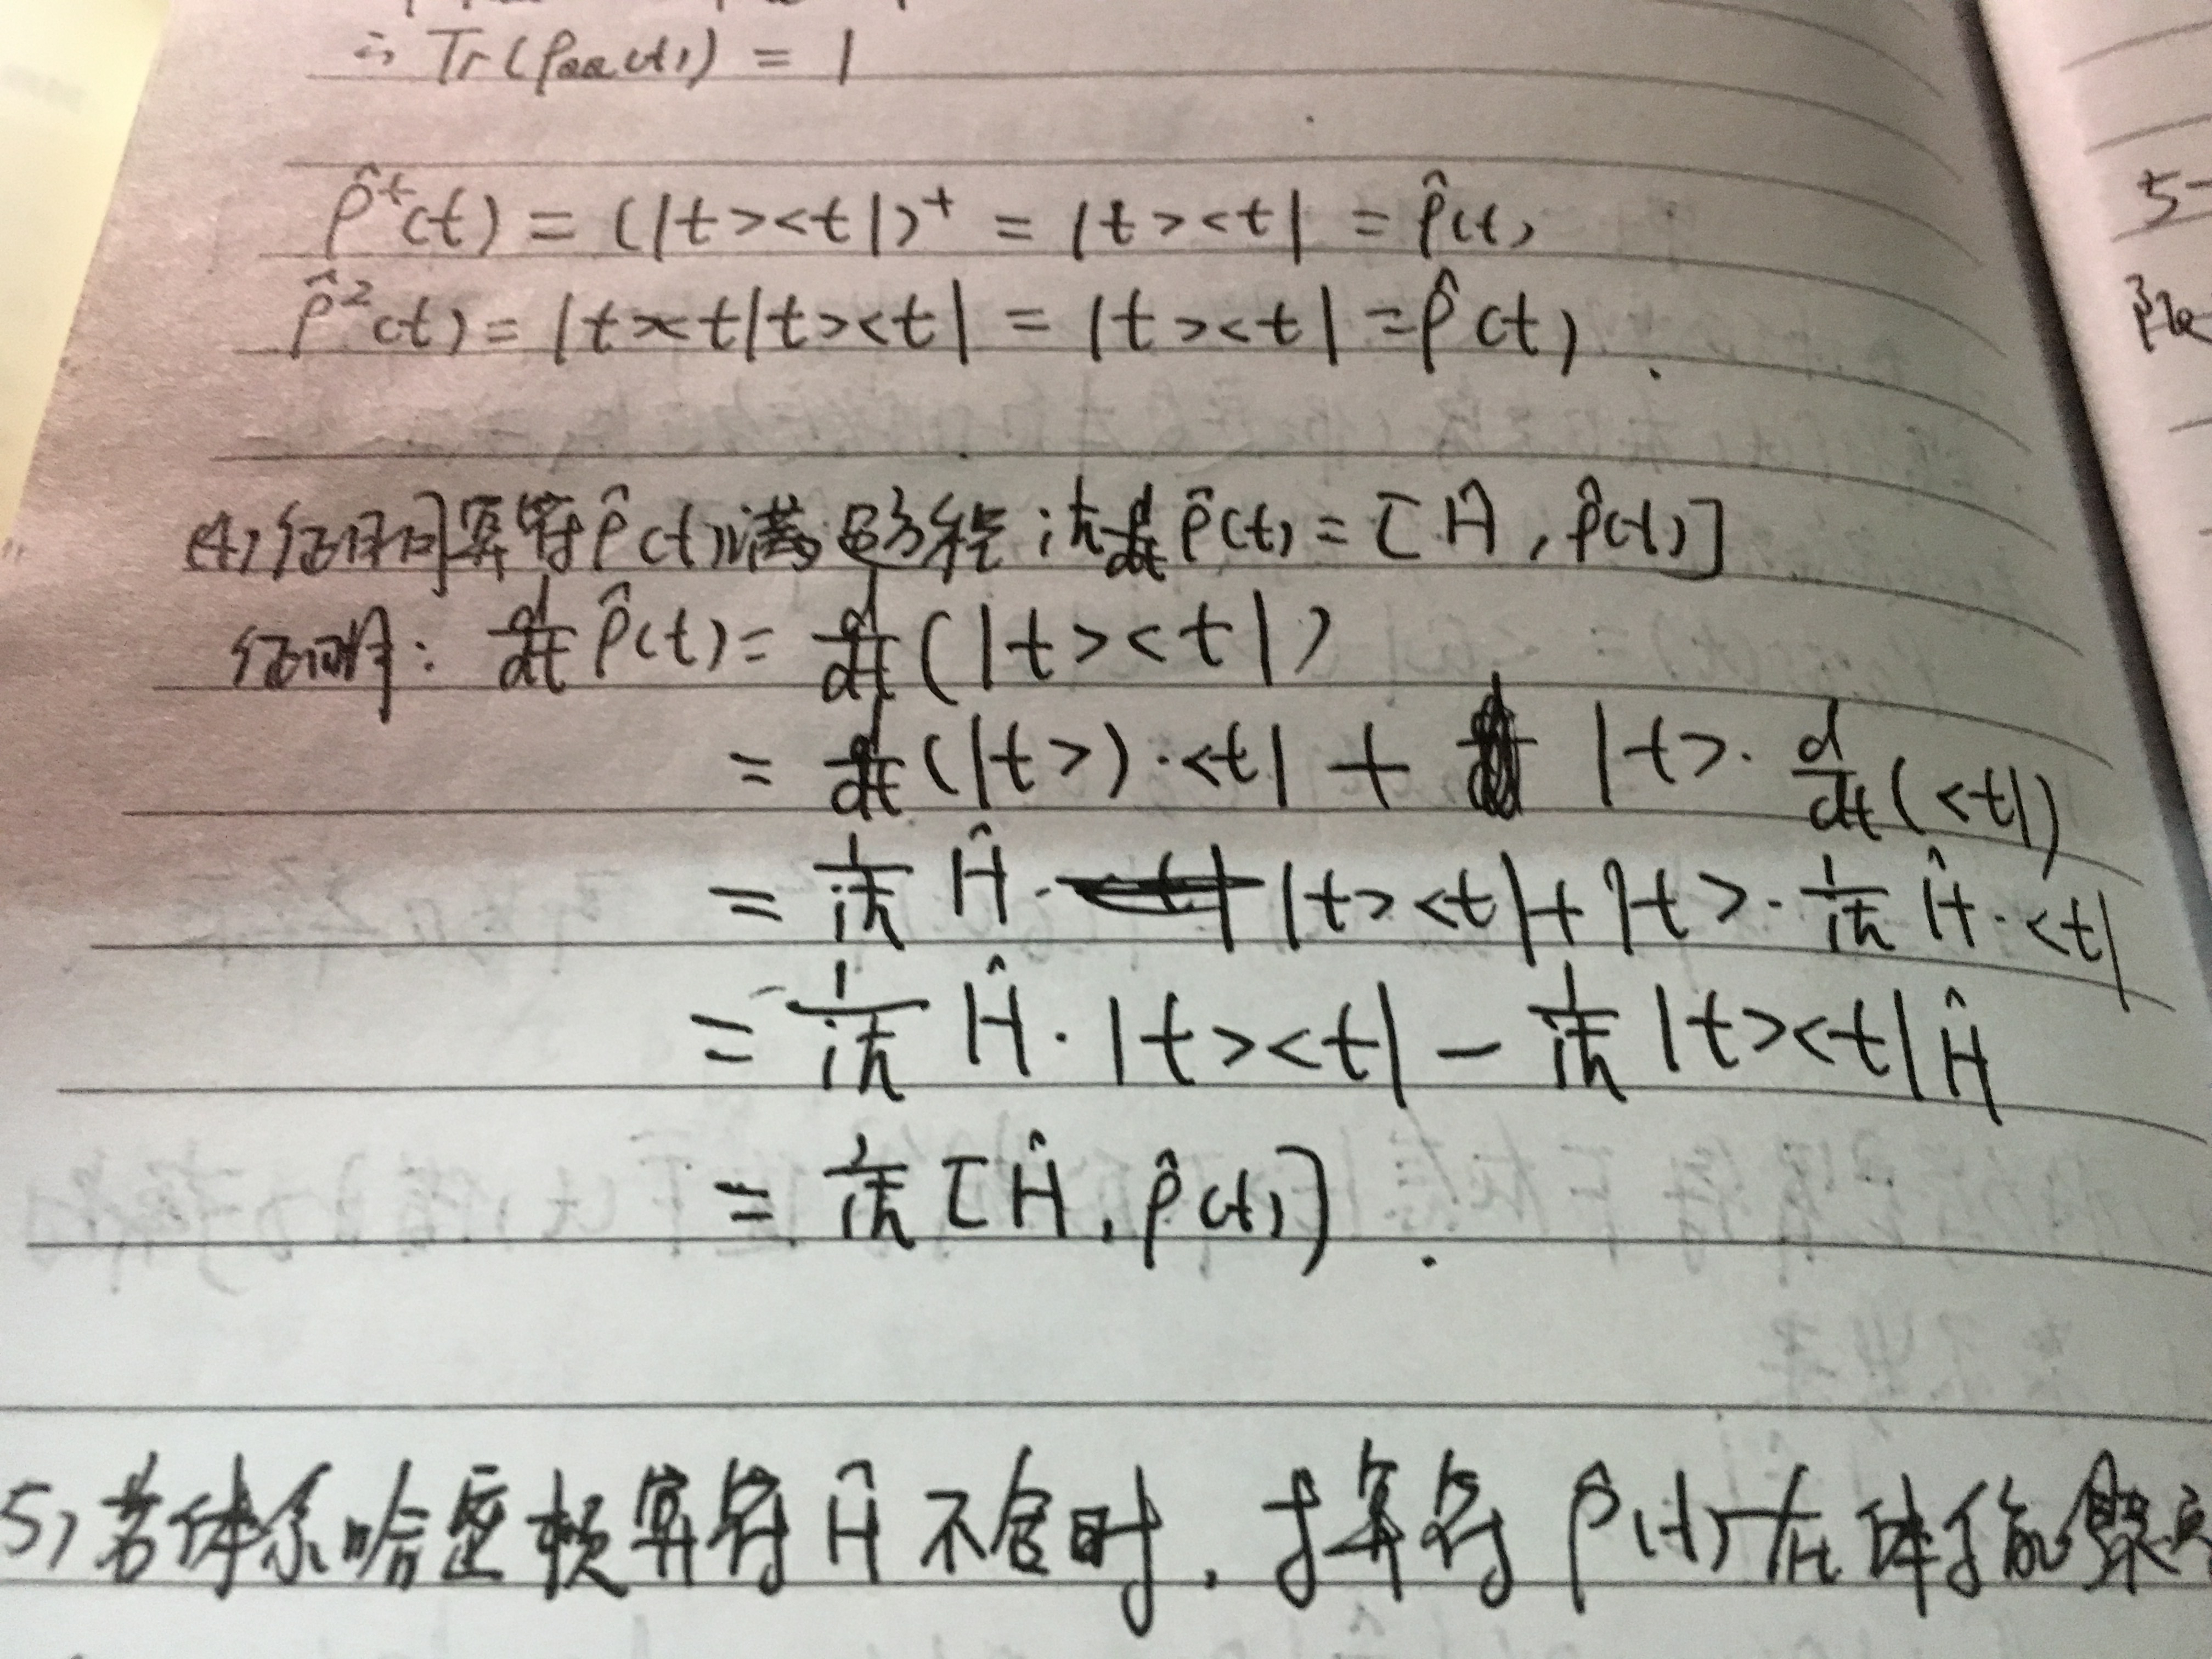 ∴ Tr(ρaa(t)) = 1
ρ̂⁺(t) = (|t><t|)⁺ = |t><t| = ρ̂(t)
ρ̂²(t) = |t><t|t><t| = |t><t| = ρ̂(t).
(4) 证明算符ρ̂(t)满足方程 iħ d/dt ρ̂(t) = [Ĥ, ρ̂(t)]
证明: d/dt ρ̂(t) = d/dt (|t><t|)
= d/dt (|t>)·<t| + |t>· d/dt (<t|)
= 1/iħ Ĥ· |t><t| + |t>· 1/iħ Ĥ·<t|
= 1/iħ Ĥ·|t><t| − 1/iħ |t><t|Ĥ
= 1/iħ [Ĥ, ρ̂(t)].
5) 若体系哈密顿算符Ĥ不含时, 求算符ρ̂(t)在体系能
5-